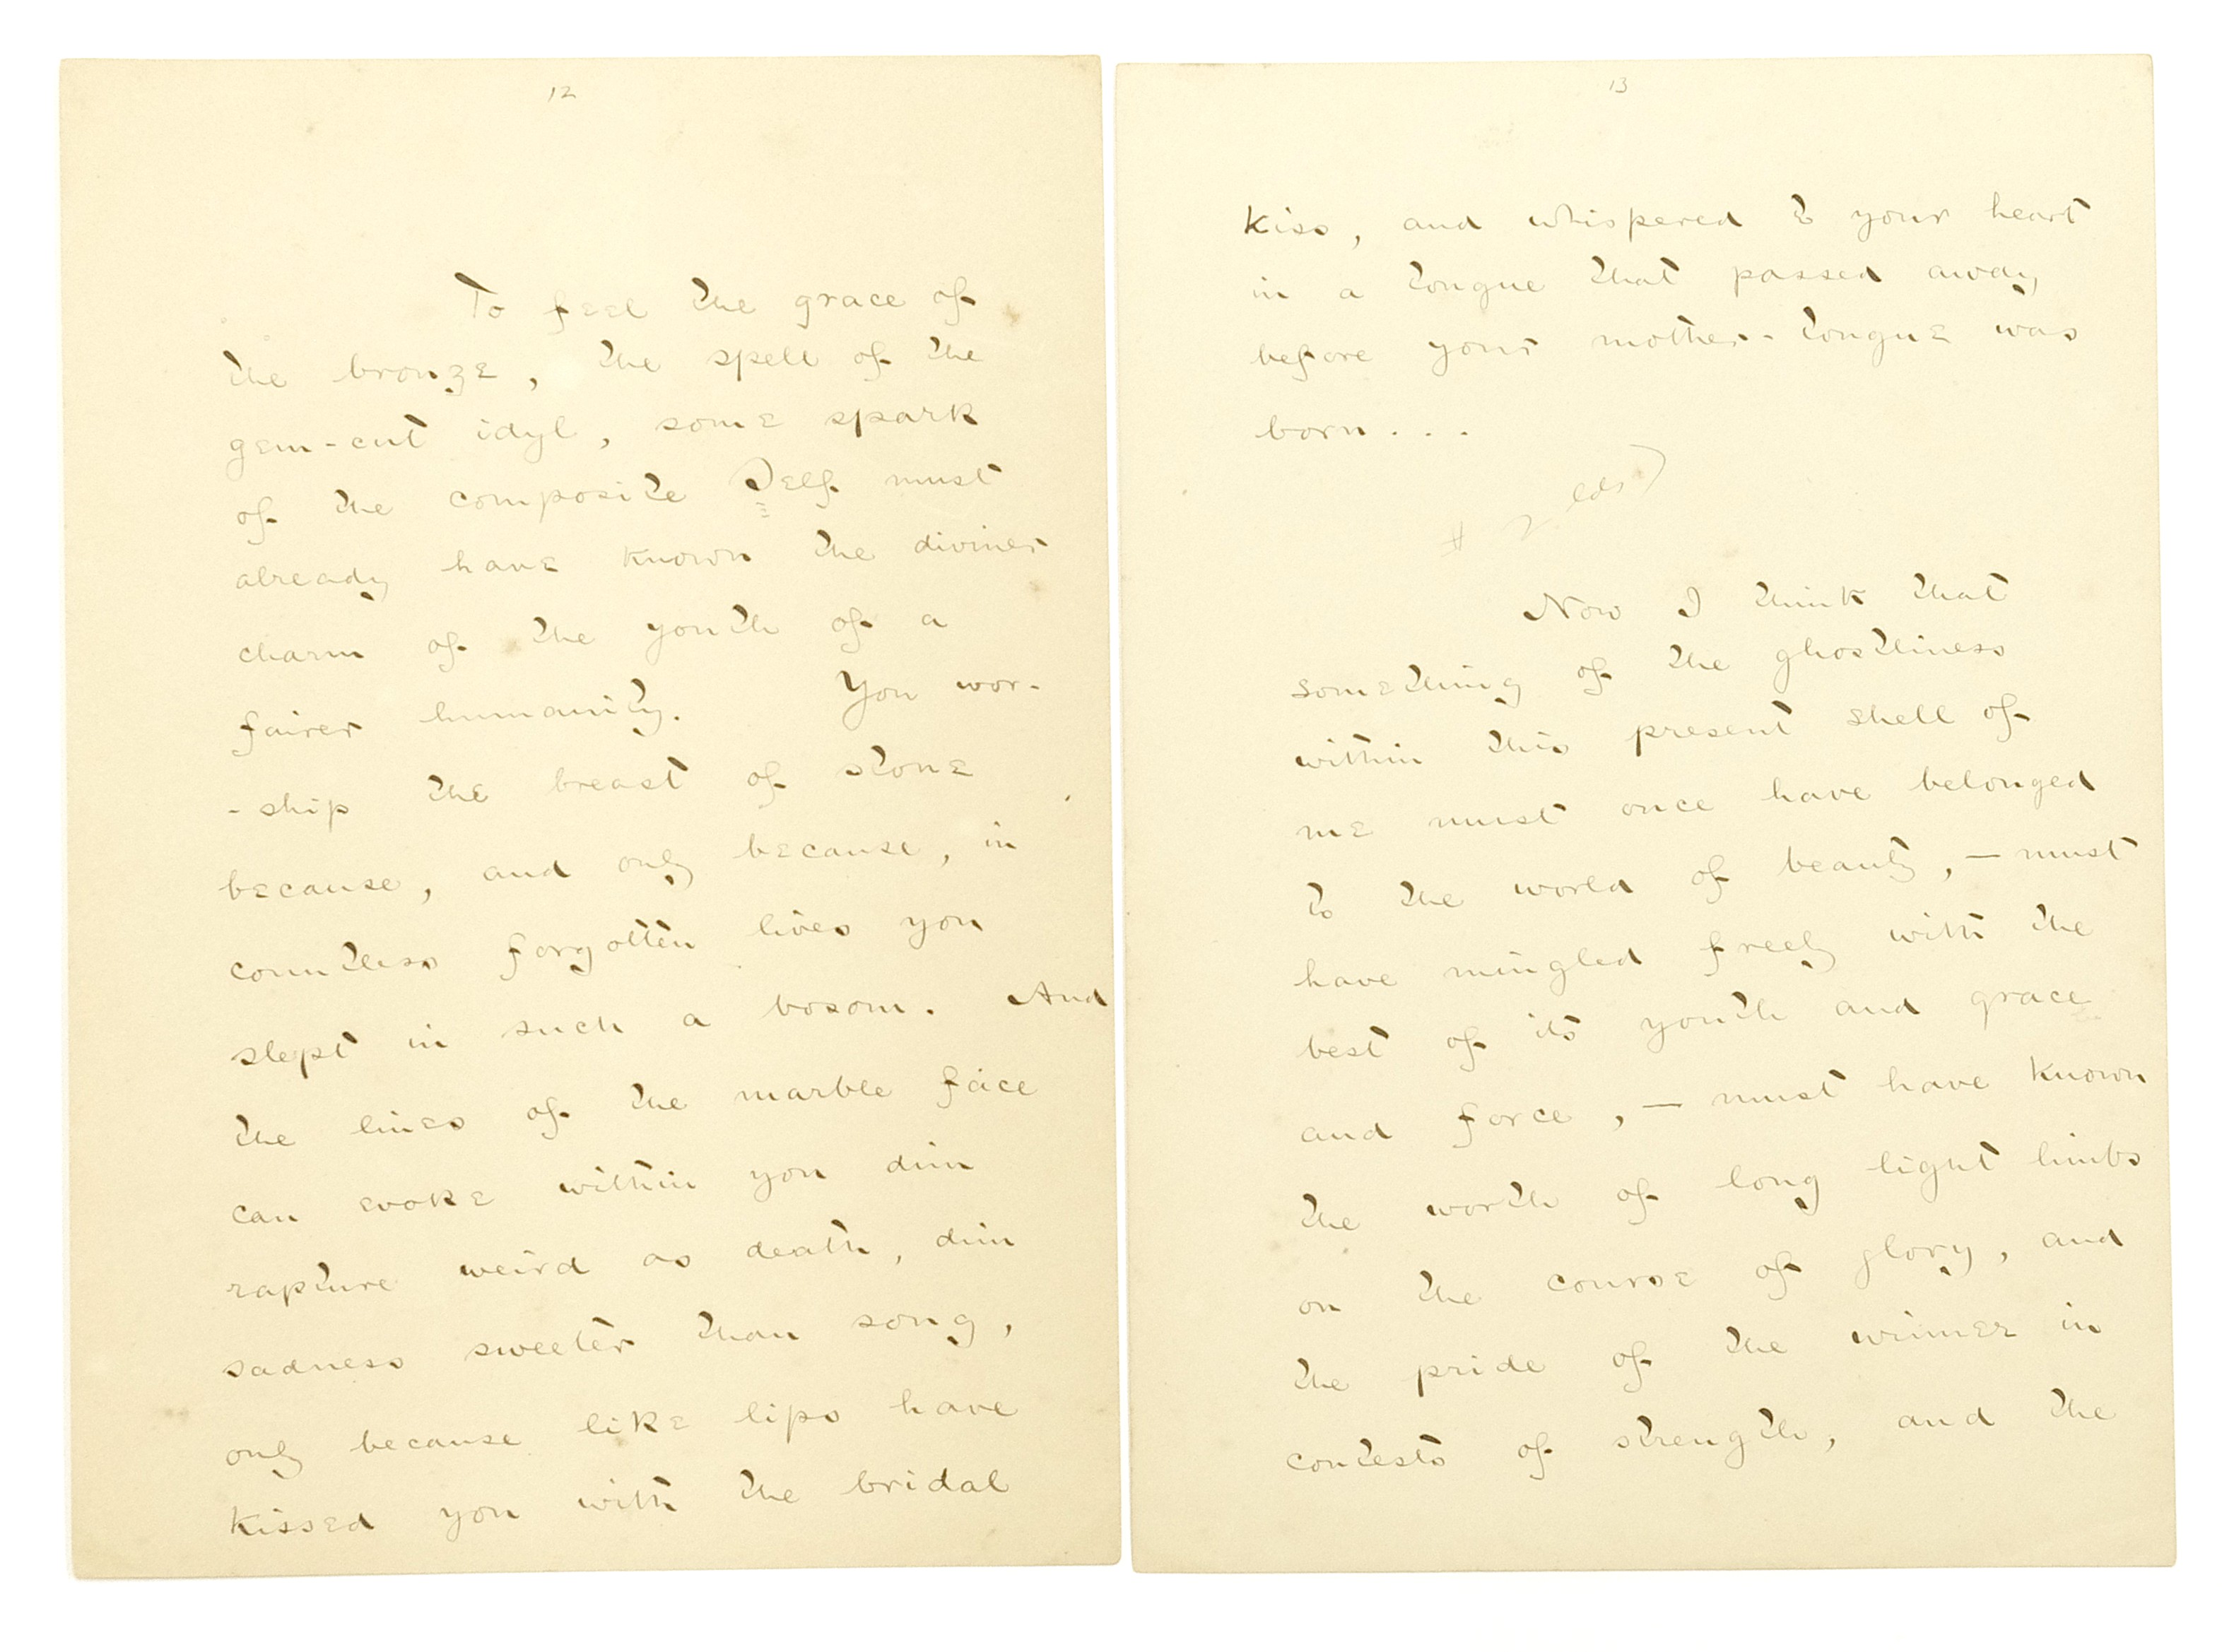 12
To feel the grace of
the bronze, the spell of the
gem-cut idyl, some spark
of the composite Self must
already have known the diviner
charm of the youth of a
fairer humanity. You wor-
-ship the breast of stone
because, and only because, in
countless forgotten lives you
slept in such a bosom. And
the lines of the marble face
can evoke within you dim
rapture weird as death, dim
sadness sweeter than song,
only because like lips have
kissed you with the bridal
13
kiss, and whispered to your heart
in a tongue that passed away
before your mother-tongue was
born...
# 2 leds)
Now I think that
something of the ghostliness
within this present shell of
me must once have belonged
to the world of beauty, — must
have mingled freely with the
best of its youth and grace
and force, — must have known
the worth of long light limbs
on the course of glory, and
the pride of the winner in
contests of strength, and the